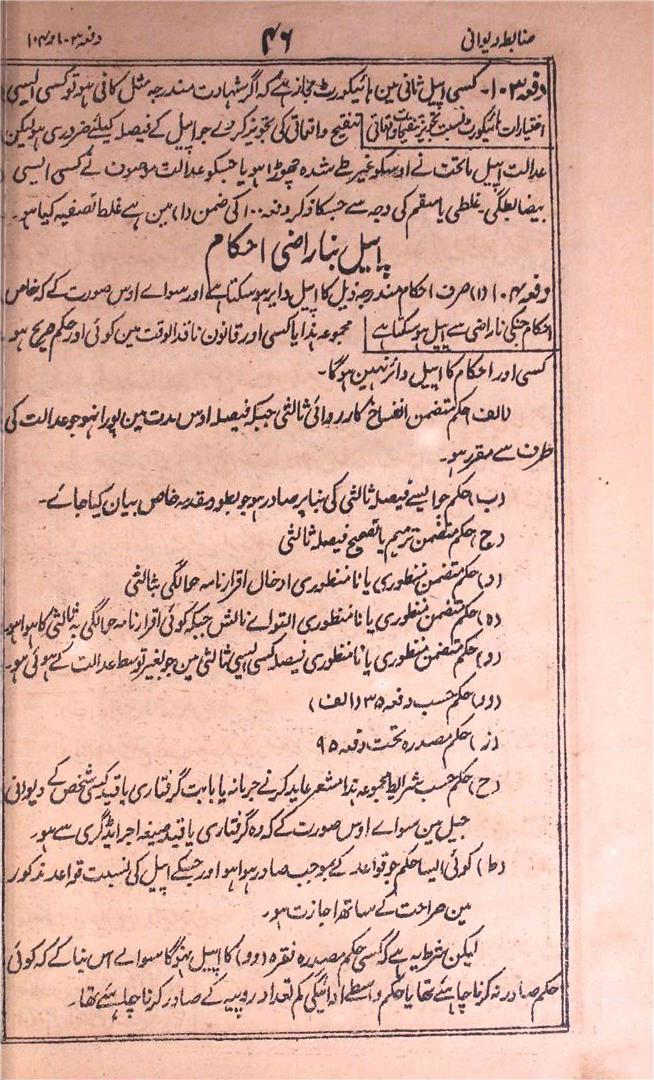 ضابطہ دیوانی ۴۶ دفعہ ۱۰۳ و ۱۰۴
دفعہ ۱۰۳۔ کسی اپیل ثانی مین ہائیکورٹ مجاز ہے کہ اگر شہادت مندرجہ مثل کافی ہو تو کسی ایسی
اختیارات ہائیکورٹ نسبت تجویز تنقیحات واقعاتی تنقیح واقعاتی کی تجویز کرے جو اپیل کے فیصلہ کیلئے ضروری ہو لیکن
عدالت اپیل ماتحت نے اوسکو غیر طے شدہ چھوڑا ہو یا جسکو عدالت موصوف نے کسی ایسی
بیضابطگی۔ غلطی یا سقم کی وجہ سے جسکا ذکر دفعہ ۱۰۰ کی ضمن (۱) مین ہے غلط تصفیہ کیا ہو۔
اپیل بناراضی احکام
دفعہ ۱۰۴ (۱) صرف احکام مندرجہ ذیل کا اپیل دایر ہو سکتا ہے اور سواے اوس صورت کے کہ خاص
احکام جنکی ناراضی سے اپیل ہو سکتا ہے مجموعہ ہذا یا کسی اور قانون نافذ الوقت مین کوئی اور حکم صریح ہو
کسی اور احکام کا اپیل دائر نہین ہوگا۔
(الف) حکم متضمن انفساخ کارروائی ثالثی جبکہ فیصلہ اوس مدت مین پورا نہو جو عدالت کی
طرف سے مقرر ہو۔
(ب) حکم جو ایسے فیصلہ ثالثی کی بنا پر صادر ہو جو بطور مقدمہ خاص بیان کیا جائے۔
(ج) حکم متضمن ترمیم یا تصحیح فیصلہ ثالثی
(د) حکم متضمن منظوری یا نا منظوری ادخال اقرار نامہ حوالگی بثالثی
(ہ) حکم متضمن منظوری یا نا منظوری التواے نالش جبکہ کوئی اقرار نامہ حوالگی بہ ثالثی کا ہوا ہو۔
(و) حکم متضمن منظوری یا نا منظوری فیصلہ کسی ایسی ثالثی مین جو بغیر توسط عدالت کے ہوئی ہو۔
(وو) حکم حسب دفعہ ۳۵ (الف)
(ز) حکم مصدرہ تحت دفعہ ۹۵
(ح) حکم حسب شرایط مجموعہ ہذا مشعر عاید کرنے جرمانہ یا بابت گرفتاری یا قید کسی شخص کے دیوانی
جیل مین سواے اوس صورت کے کہ وہ گرفتاری یا قید بصیغہ اجراے ڈگری سے ہو۔
(ط) کوئی ایسا حکم جو قواعد کے بموجب صادر ہوا ہو اور جسکے اپیل کی نسبت قواعد مذکور
مین صراحت کے ساتھ اجازت ہو۔
لیکن شرط یہ ہے کہ کسی حکم مصدرہ فقرہ (وو) کا اپیل نہوگا سواے اس بنا کے کہ کوئی
حکم صادر نہ کرنا چاہیئے تھا یا حکم واسطے ادائیگی کم تعداد روپیہ کے صادر کرنا چاہیئے تھا۔